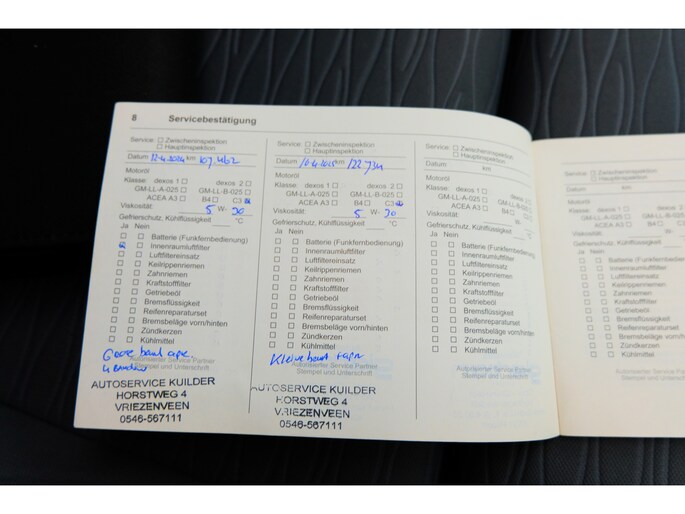 8 Servicebestätigung
Service: Zwischeninspektion
Hauptinspektion
Datum 12-4-2024 km 107.462
Motoröl
Klasse: dexos 1 dexos 2
GM-LL-A-025 GM-LL-B-025
ACEA A3 B4 C3
Viskosität: 5 W- 30
Gefrierschutz, Kühlflüssigkeit °C
Ja Nein
Batterie (Funkfernbedienung)
Innenraumluftfilter
Luftfiltereinsatz
Keilrippenriemen
Zahnriemen
Kraftstofffilter
Getriebeöl
Bremsflüssigkeit
Reifenreparaturset
Bremsbeläge vorn/hinten
Zündkerzen
Kühlmittel
Autorisierter Service Partner
Stempel und Unterschrift
AUTOSERVICE KUILDER
HORSTWEG 4
VRIEZENVEEN
0546-567111
Service: Zwischeninspektion
Hauptinspektion
Datum km 122.734
Motoröl
Klasse: dexos 1 dexos 2
GM-LL-A-025 GM-LL-B-025
ACEA A3 B4 C3
Viskosität: 5 W- 30
Gefrierschutz, Kühlflüssigkeit °C
Ja Nein
Batterie (Funkfernbedienung)
Innenraumluftfilter
Luftfiltereinsatz
Keilrippenriemen
Zahnriemen
Kraftstofffilter
Getriebeöl
Bremsflüssigkeit
Reifenreparaturset
Bremsbeläge vorn/hinten
Zündkerzen
Kühlmittel
Kleine
Autorisierter Service Partner
Stempel und Unterschrift
AUTOSERVICE KUILDER
HORSTWEG 4
VRIEZENVEEN
0546-567111
Service: Zwischeninspektion
Hauptinspektion
Datum km
Motoröl
Klasse: dexos 1 dexos 2
GM-LL-A-025 GM-LL-B-025
ACEA A3 B4 C3
Viskosität: W-
Gefrierschutz, Kühlflüssigkeit °C
Ja Nein
Batterie (Funkfernbedienung)
Innenraumluftfilter
Luftfiltereinsatz
Keilrippenriemen
Zahnriemen
Kraftstofffilter
Getriebeöl
Bremsflüssigkeit
Reifenreparaturset
Bremsbeläge vorn/hinten
Zündkerzen
Kühlmittel
Autorisierter Service Partner
Stempel und Unterschrift
Service: Zwischeninspektion
Hauptinspektion
Datum km
Motoröl
Klasse: dexos 1 dexos 2
GM-LL-A-025 GM-LL-B-025
ACEA A3 B4 C3
Viskosität: W-
Gefrierschutz, Kühlflüssigkeit
Ja Nein
Batterie (Funkfernbedienung)
Innenraumluftfilter
Luftfiltereinsatz
Keilrippenriemen
Zahnriemen
Kraftstofffilter
Getriebeöl
Bremsflüssigkeit
Reifenreparaturset
Bremsbeläge vorn/hinten
Zündkerzen
Kühlmittel
Autorisierter Service Partner
Stempel und Unterschrift